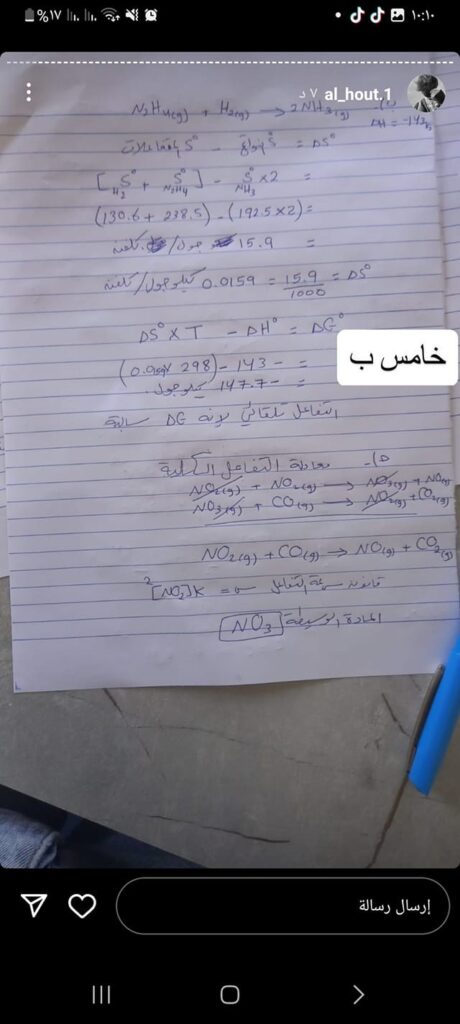 ١٠:١٠
%١٧
al_hout.1 ٧ د
N2H4(g) + H2(g) → 2NH3(g)
ΔH = -143
ΔS° = S° نواتج - S° متفاعلات
= 2×S°NH3 - [S°N2H4 + S°H2]
=(192.5×2) - (130.6 + 238.5)
= 15.9 جول/كلفنة
ΔS° = 15.9/1000 = 0.0159 كيلوجول/كلفنة
ΔG° = ΔH° - T × ΔS°
= -143 - (298 ×
= -147.7 كيلوجول
التفاعل تلقائي لانه ΔG سالبة
خامس ب
معادلة التفاعل الكلية
NO2(g) + NO2(g) → NO3(g) + NO(g)
NO3(g) + CO(g) → NO2(g) + CO2(g)
NO2(g) + CO(g) → NO(g) + CO2(g)
قانون سرعة التفاعل س = K[NO2]2
المادة الوسيطة NO3
إرسال رسالة